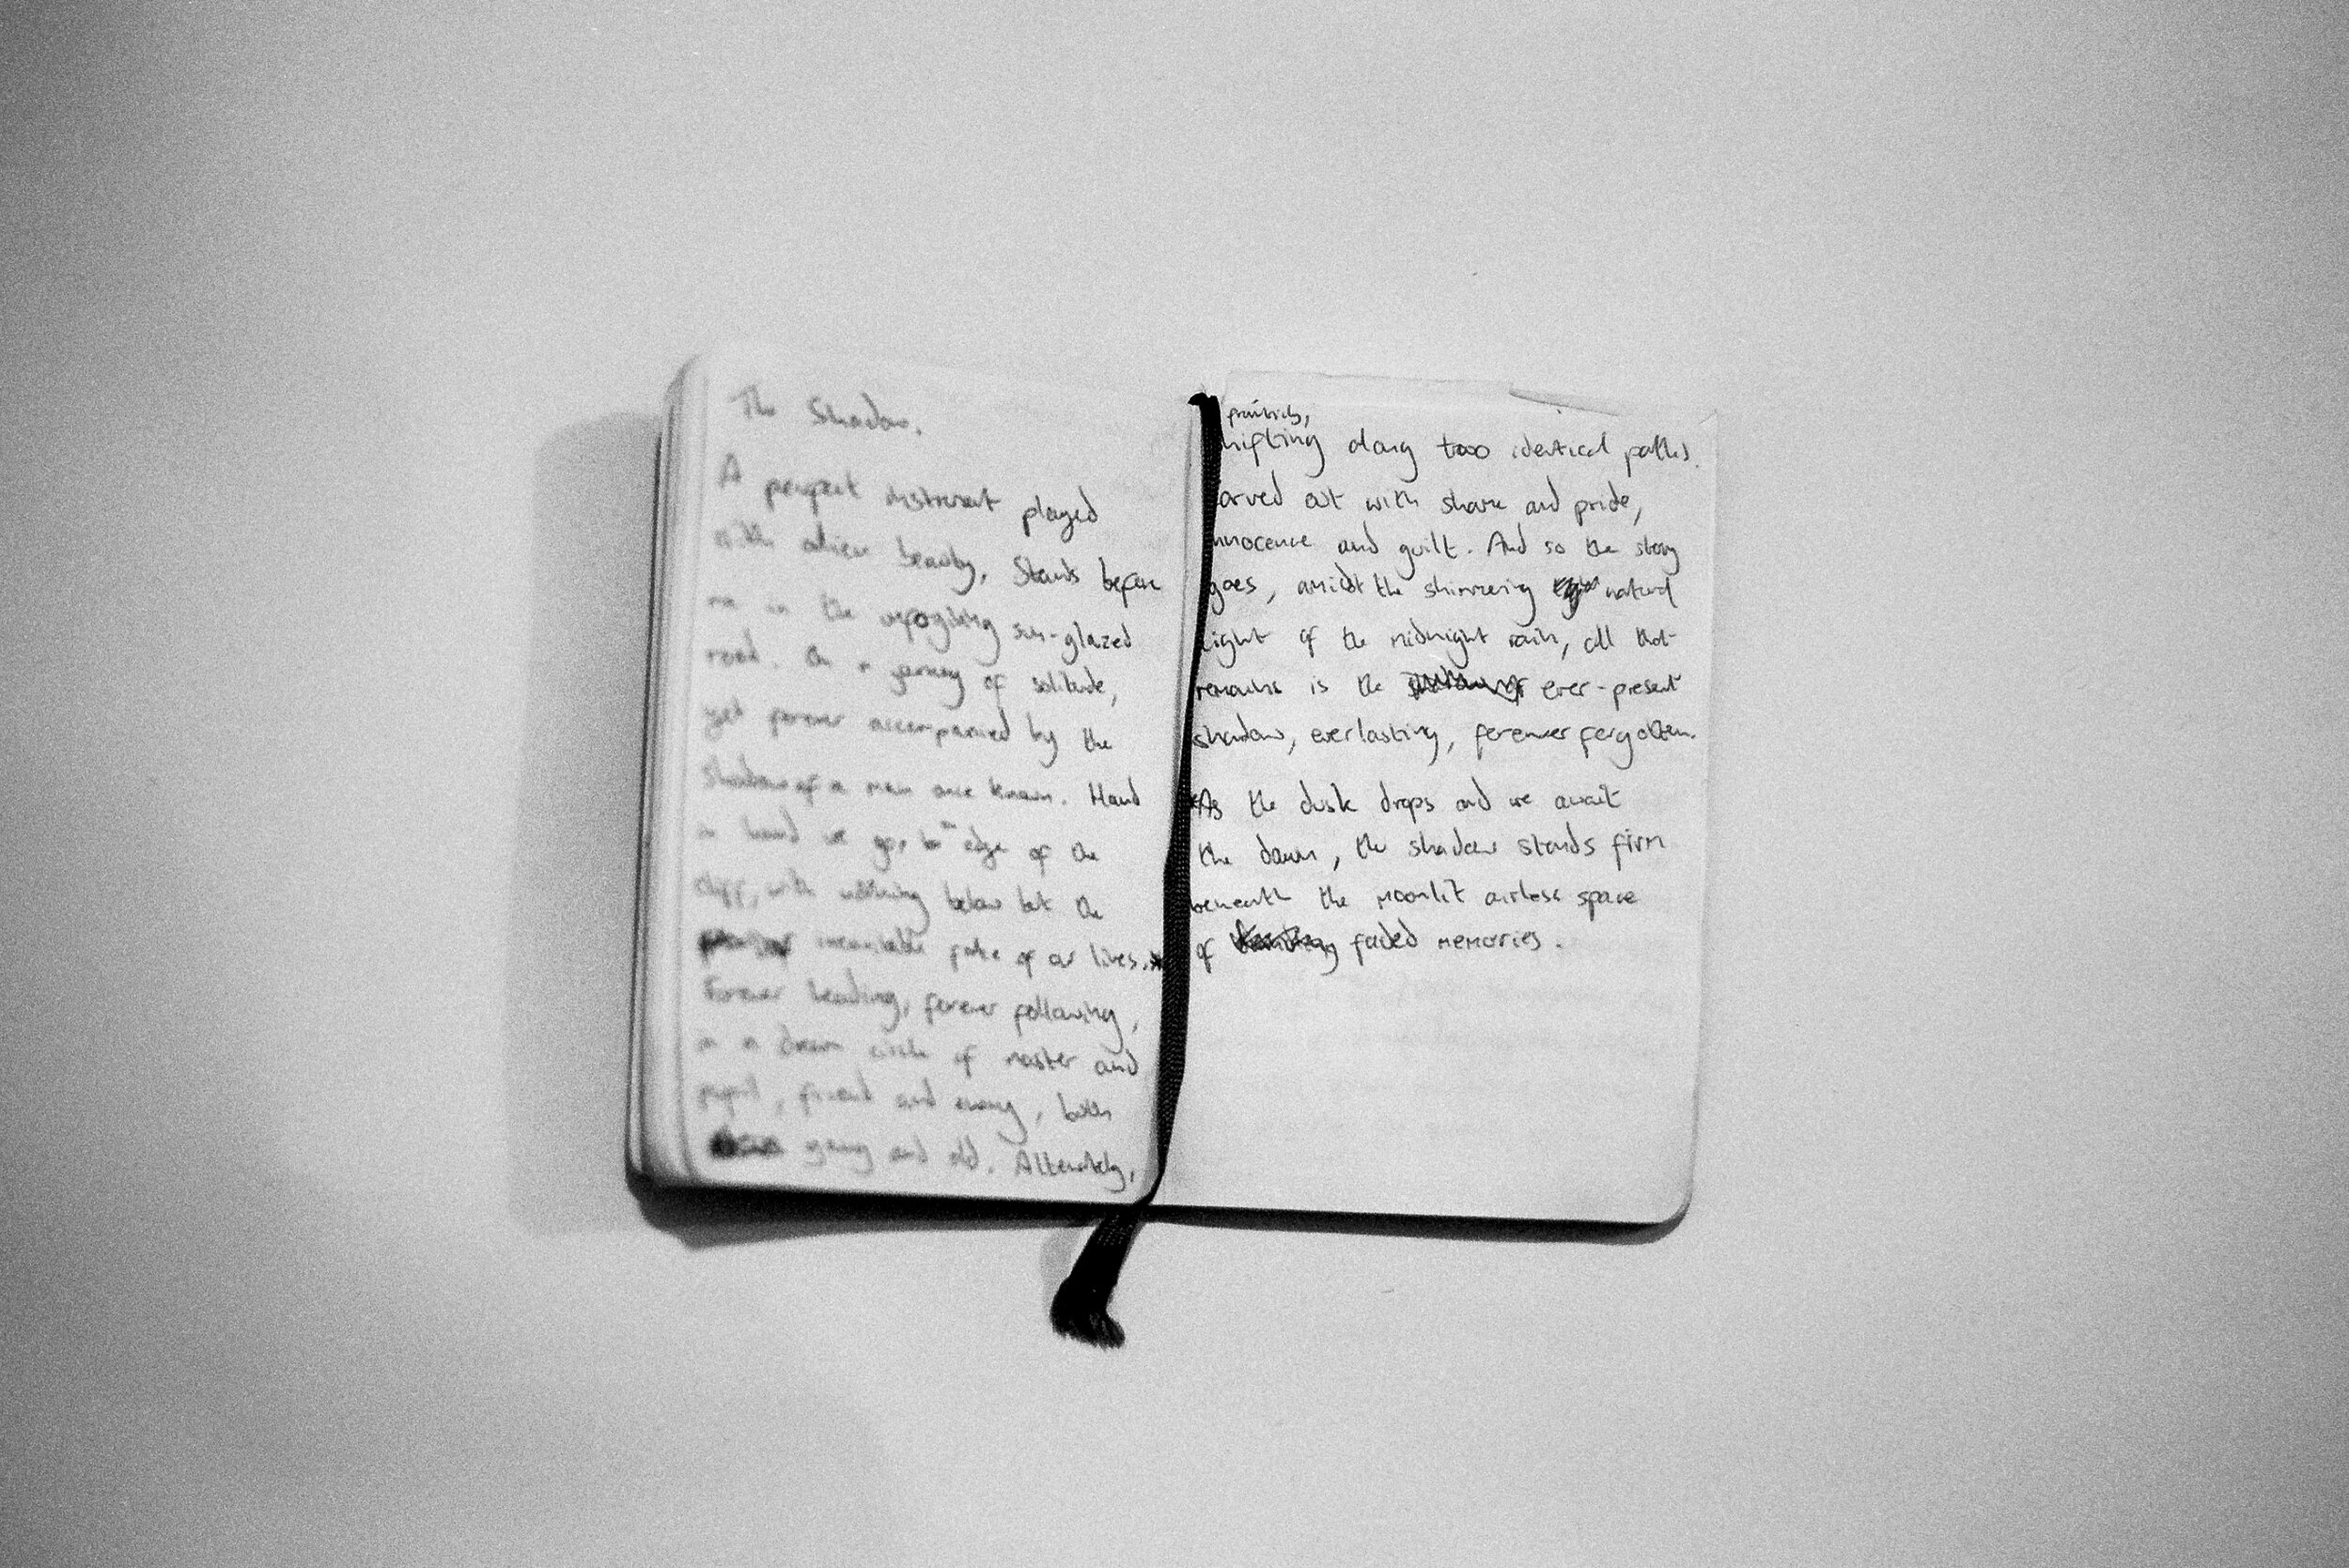 The Shadow.
A perfect instrument played
with alien beauty, Stands before
me in the unforgiving sun-glazed
road. On a journey of solitude,
yet forever accompanied by the
shadow of a man once known. Hand
in hand we go, to edge of the
cliff, with nothing below but the
inevitable fate of our lives.
Forever leading, forever following,
in a dream circle of master and
pupil, friend and enemy, both
young and old. Alternately,
hifting along two identical paths.
arved out with shame and pride,
innocence and guilt. And so the story
goes, amidst the shimmering natural
light of the midnight rain, all that
remains is the ever-present
shadow, everlasting, forever forgotten.
As the dusk drops and we await
the dawn, the shadow stands firm
beneath the moonlit airless space
of faded memories.